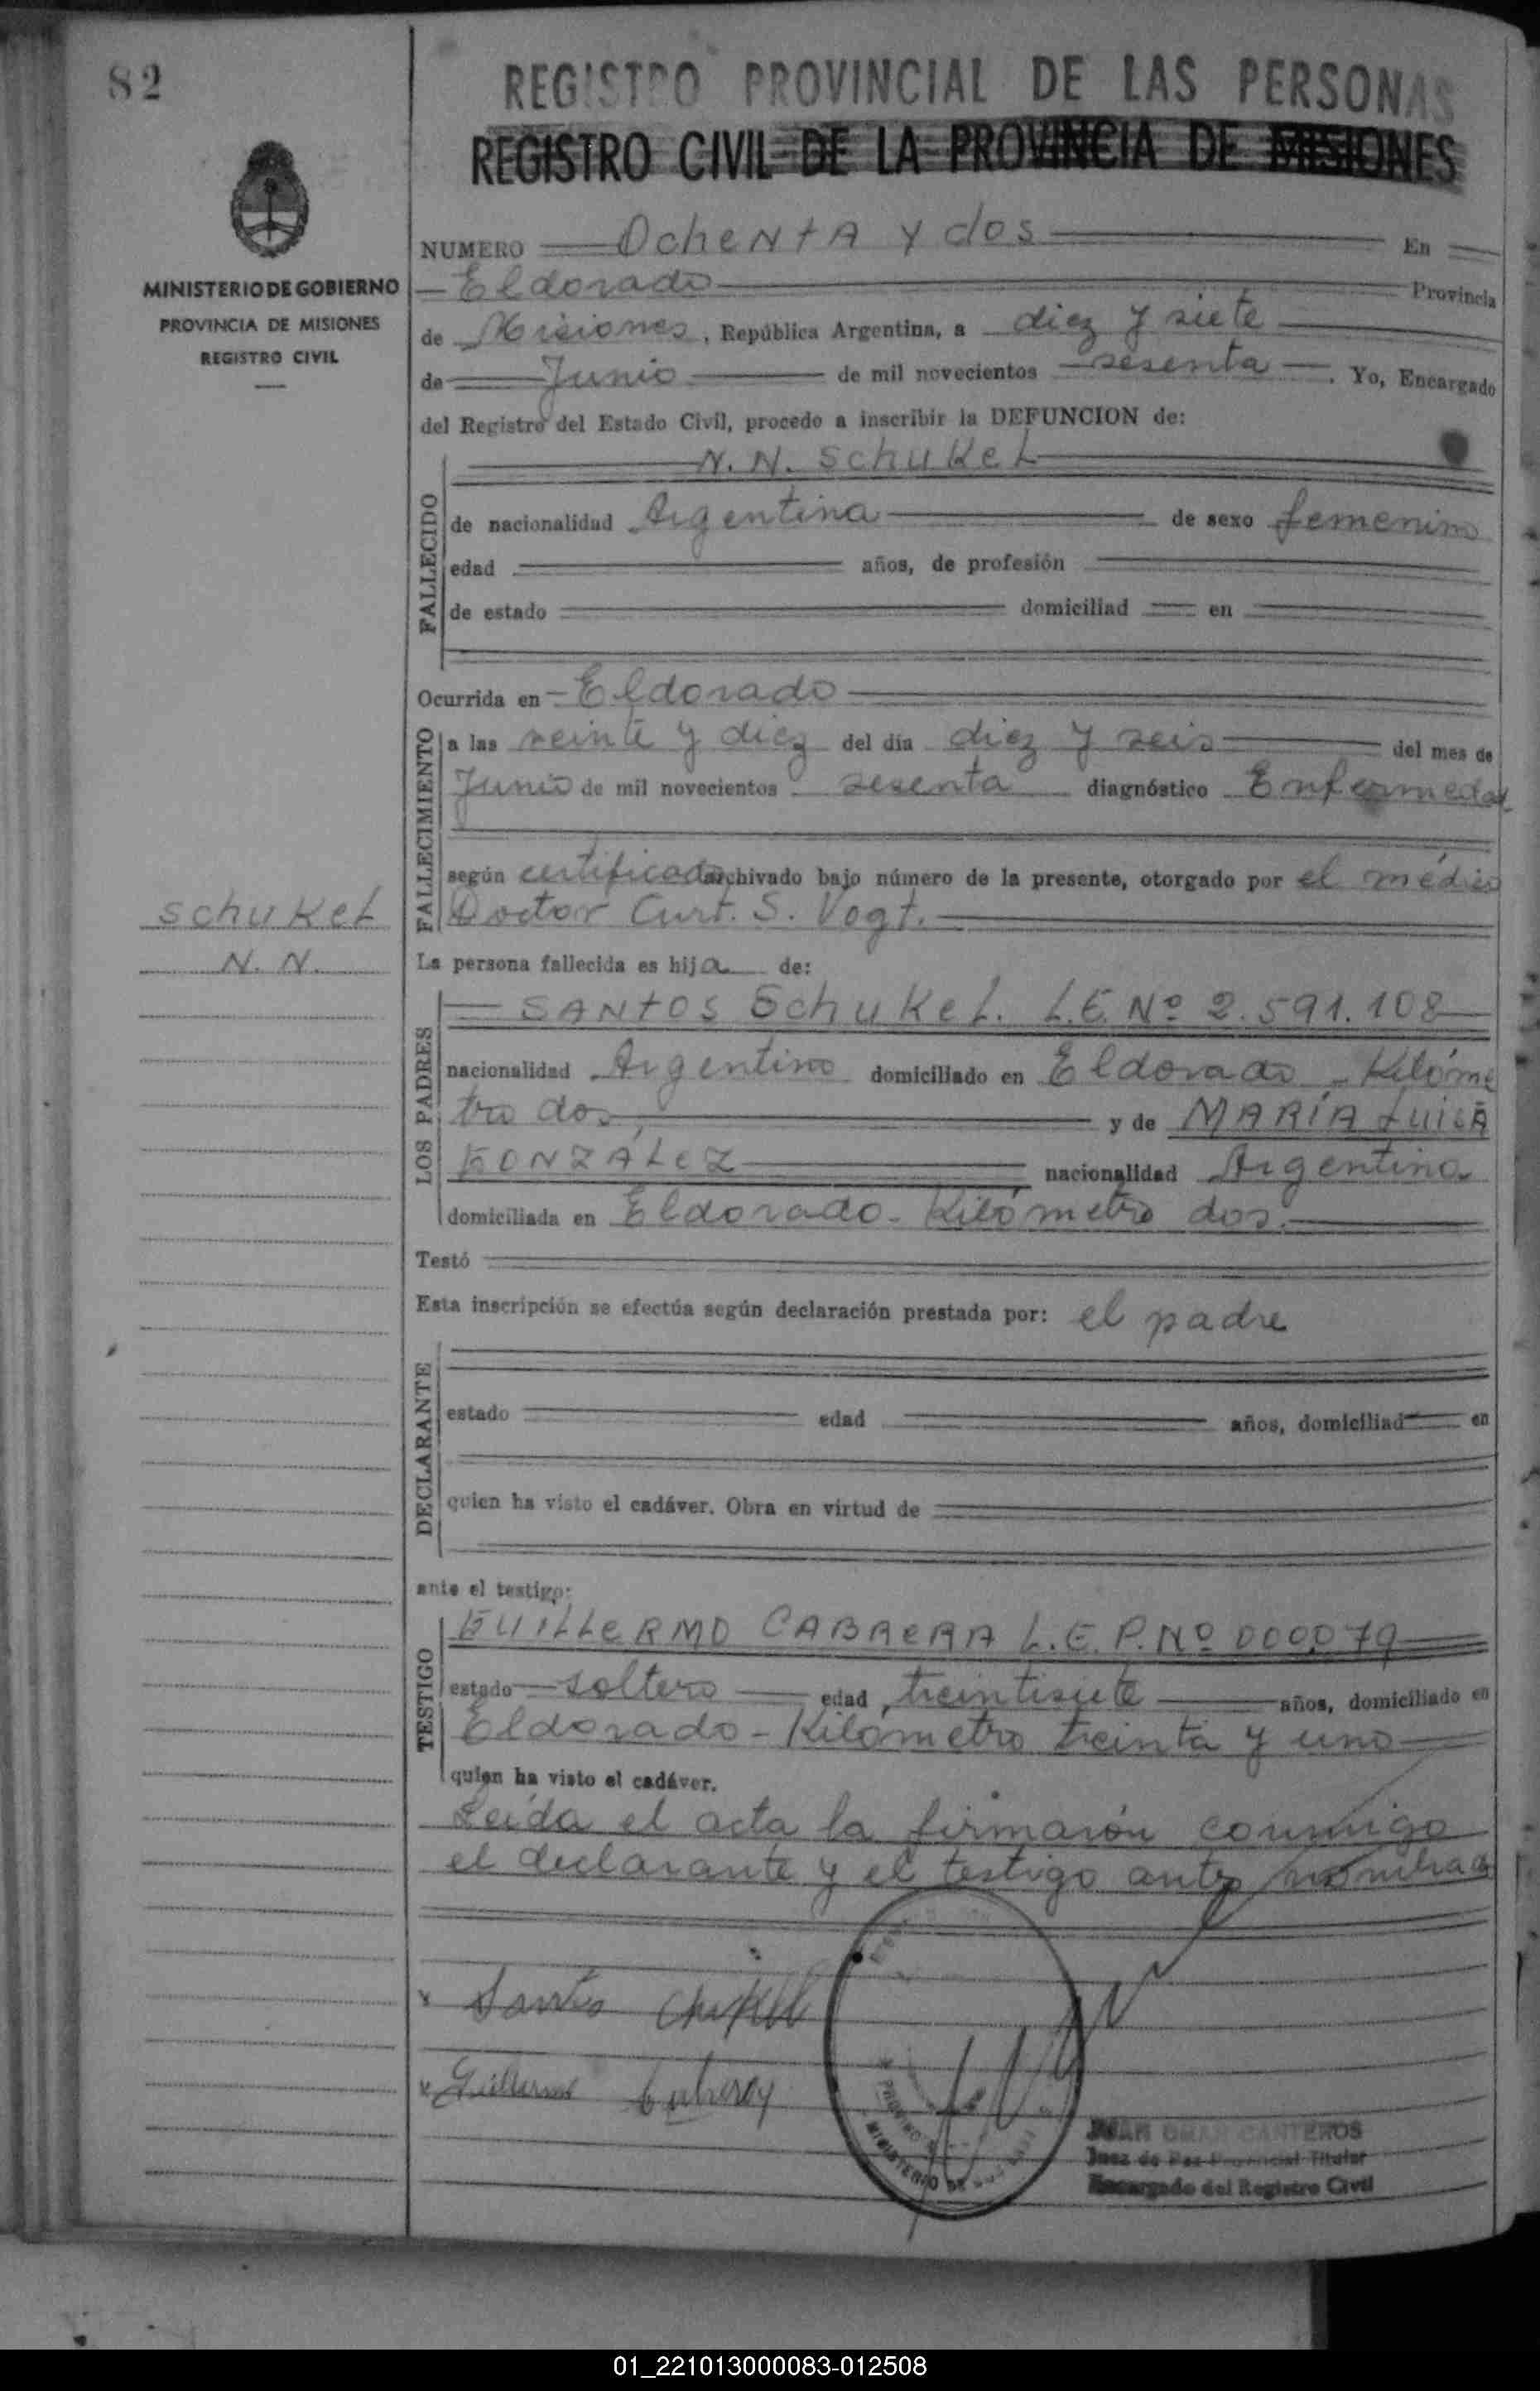 82
REGISTRO PROVINCIAL DE LAS PERSONAS
REGISTRO CIVIL DE LA PROVINCIA DE MISIONES
MINISTERIO DE GOBIERNO
PROVINCIA DE MISIONES
REGISTRO CIVIL
NUMERO OcheNtA y dos En
Eldorado Provincia
de Misiones, República Argentina, a diez y siete
de Junio de mil novecientos sesenta. Yo, Encargado
del Registro del Estado Civil, procedo a inscribir la DEFUNCION de:
N. N. SchuKeL
FALLECIDO
de nacionalidad Argentina de sexo femenino
edad años, de profesión
de estado domiciliad en
Ocurrida en Eldorado
FALLECIMIENTO
a las veinte y diez del día diez y seis del mes de
Junio de mil novecientos sesenta diagnóstico Enfermedad
según certificado archivado bajo número de la presente, otorgado por el médico
Doctor Curt. S. Vogt.
SchuKeL
N. N.
La persona fallecida es hija de:
LOS PADRES
SANTOS SchuKeL. L.E. Nº 2.591.108
nacionalidad Argentino domiciliado en Eldorado - Kilóme
tro dos, y de MARÍA LuisA
GONZÁLEZ nacionalidad Argentina
domiciliada en Eldorado - Kilómetro dos.
Testó
Esta inscripción se efectúa según declaración prestada por: el padre
DECLARANTE
estado edad años, domiciliad en
quien ha visto el cadáver. Obra en virtud de
ante el testigo:
TESTIGO
GUILLERMO CABRERA L.E.P. Nº 000079
estado soltero edad treintisiete años, domiciliado en
Eldorado - Kilómetro treinta y uno
quien ha visto el cadáver.
Leída el acta la firmarón conmigo
el declarante y el testigo antes nombrado
x Santos Chukel
x Guillermo Cabrera
MINISTERIO DE
JUAN OMAR CANTEROS
Juez de Paz Provincial Titular
Encargado del Registro Civil
01_221013000083-012508